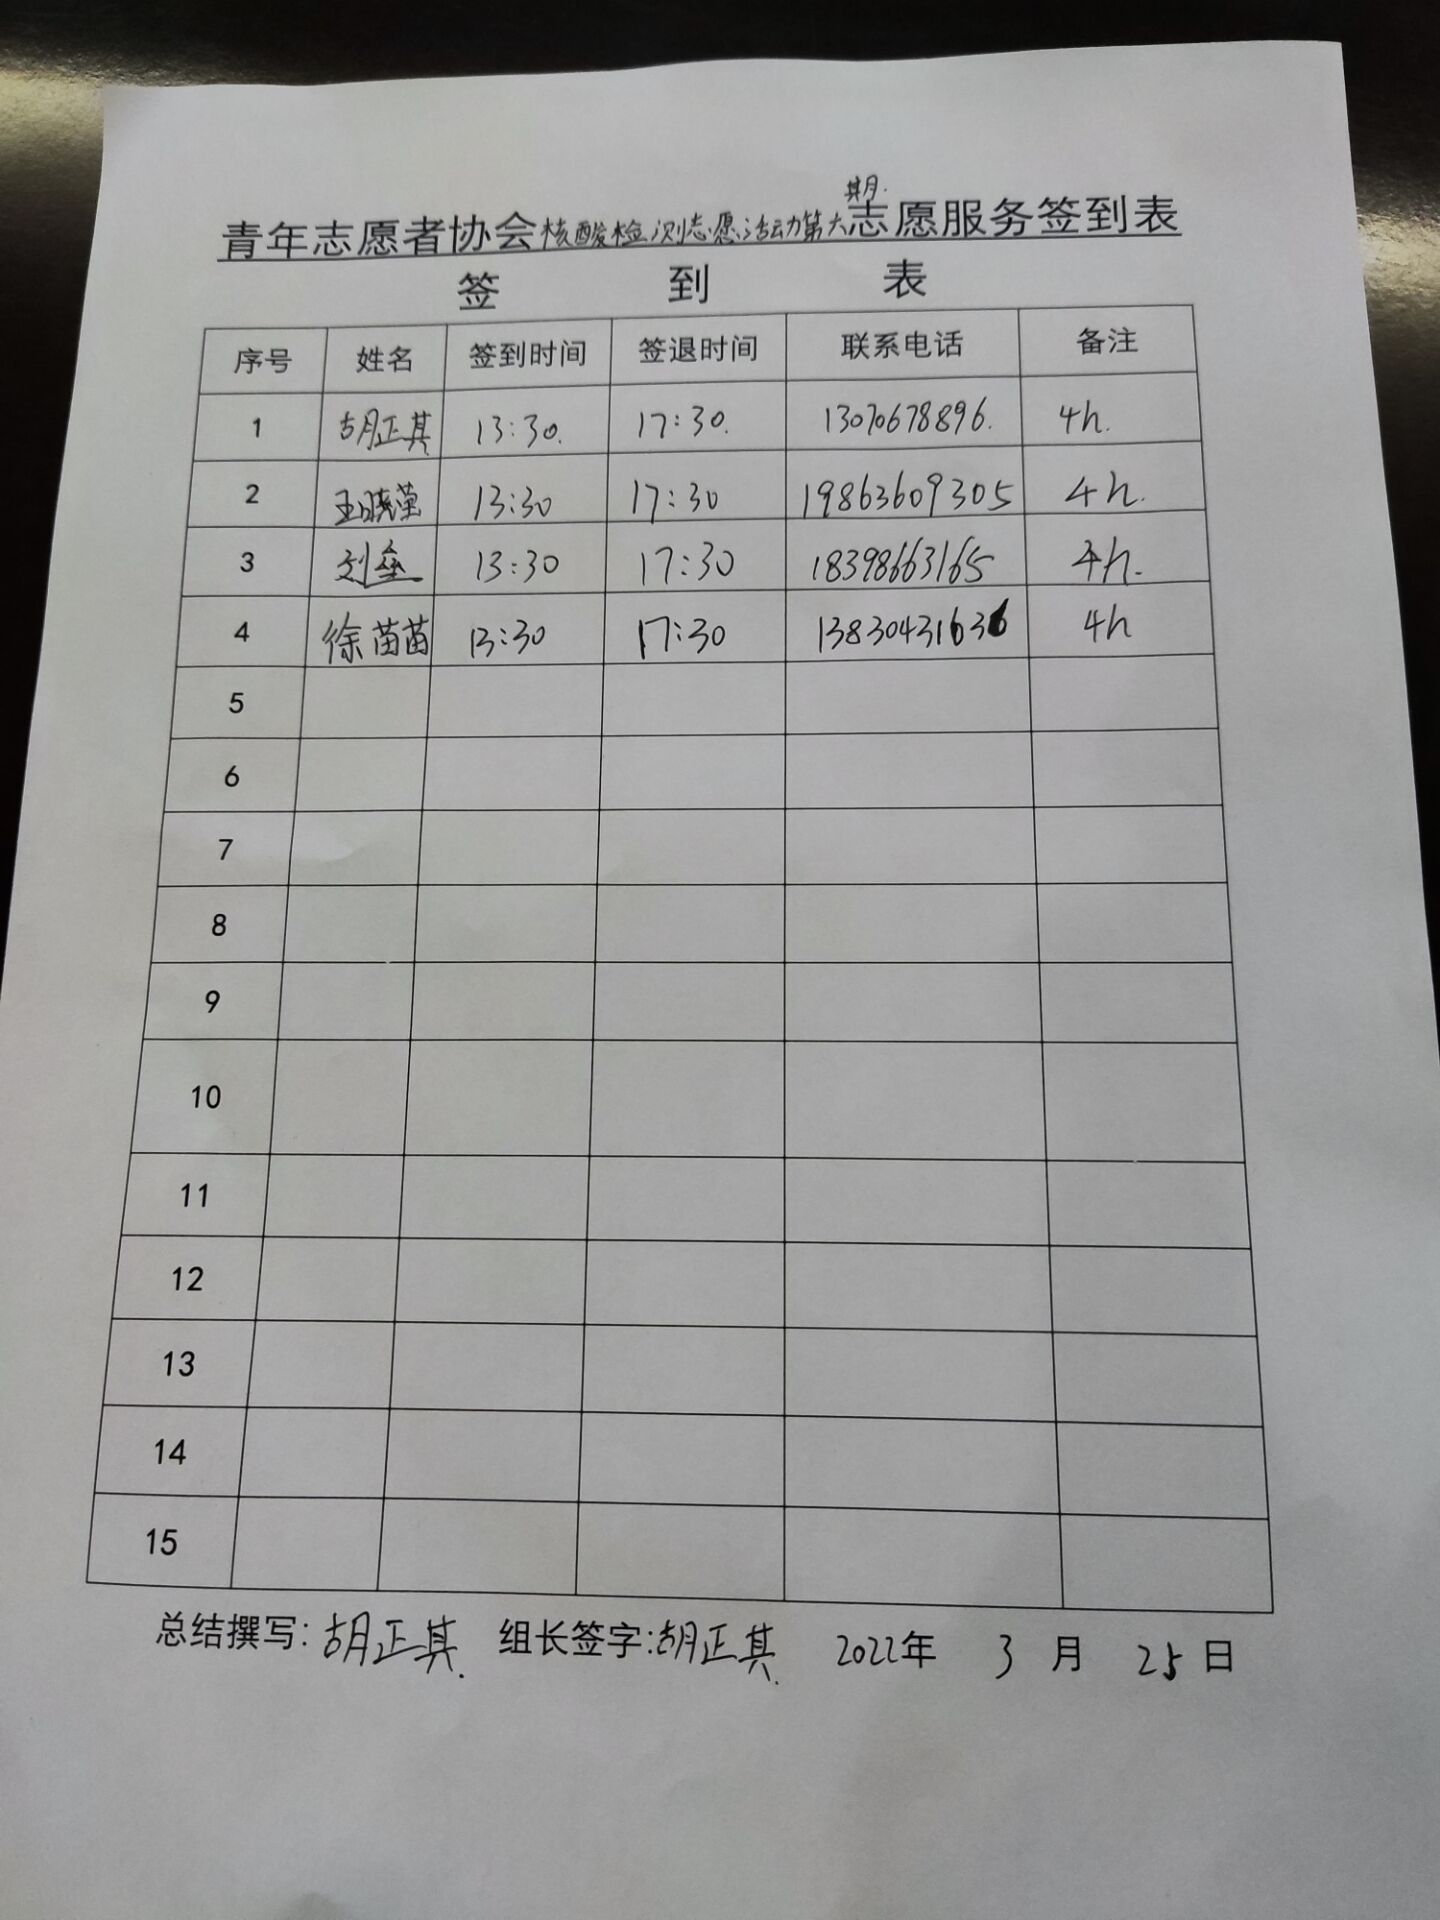 青年志愿者协会核酸检测志愿活动第六期志愿服务签到表
签 到 表
序号 姓名 签到时间 签退时间 联系电话 备注
1 胡正其 13:30. 17:30. 13070678896. 4h.
2 王晓莹 13:30 17:30 19863609305 4h.
3 刘 13:30 17:30 18398663165 4h.
4 徐苗苗 13:30 17:30 13830431636 4h
5
6
7
8
9
10
11
12
13
14
15
总结撰写: 胡正其. 组长签字:胡正其. 2022年 3 月 25 日